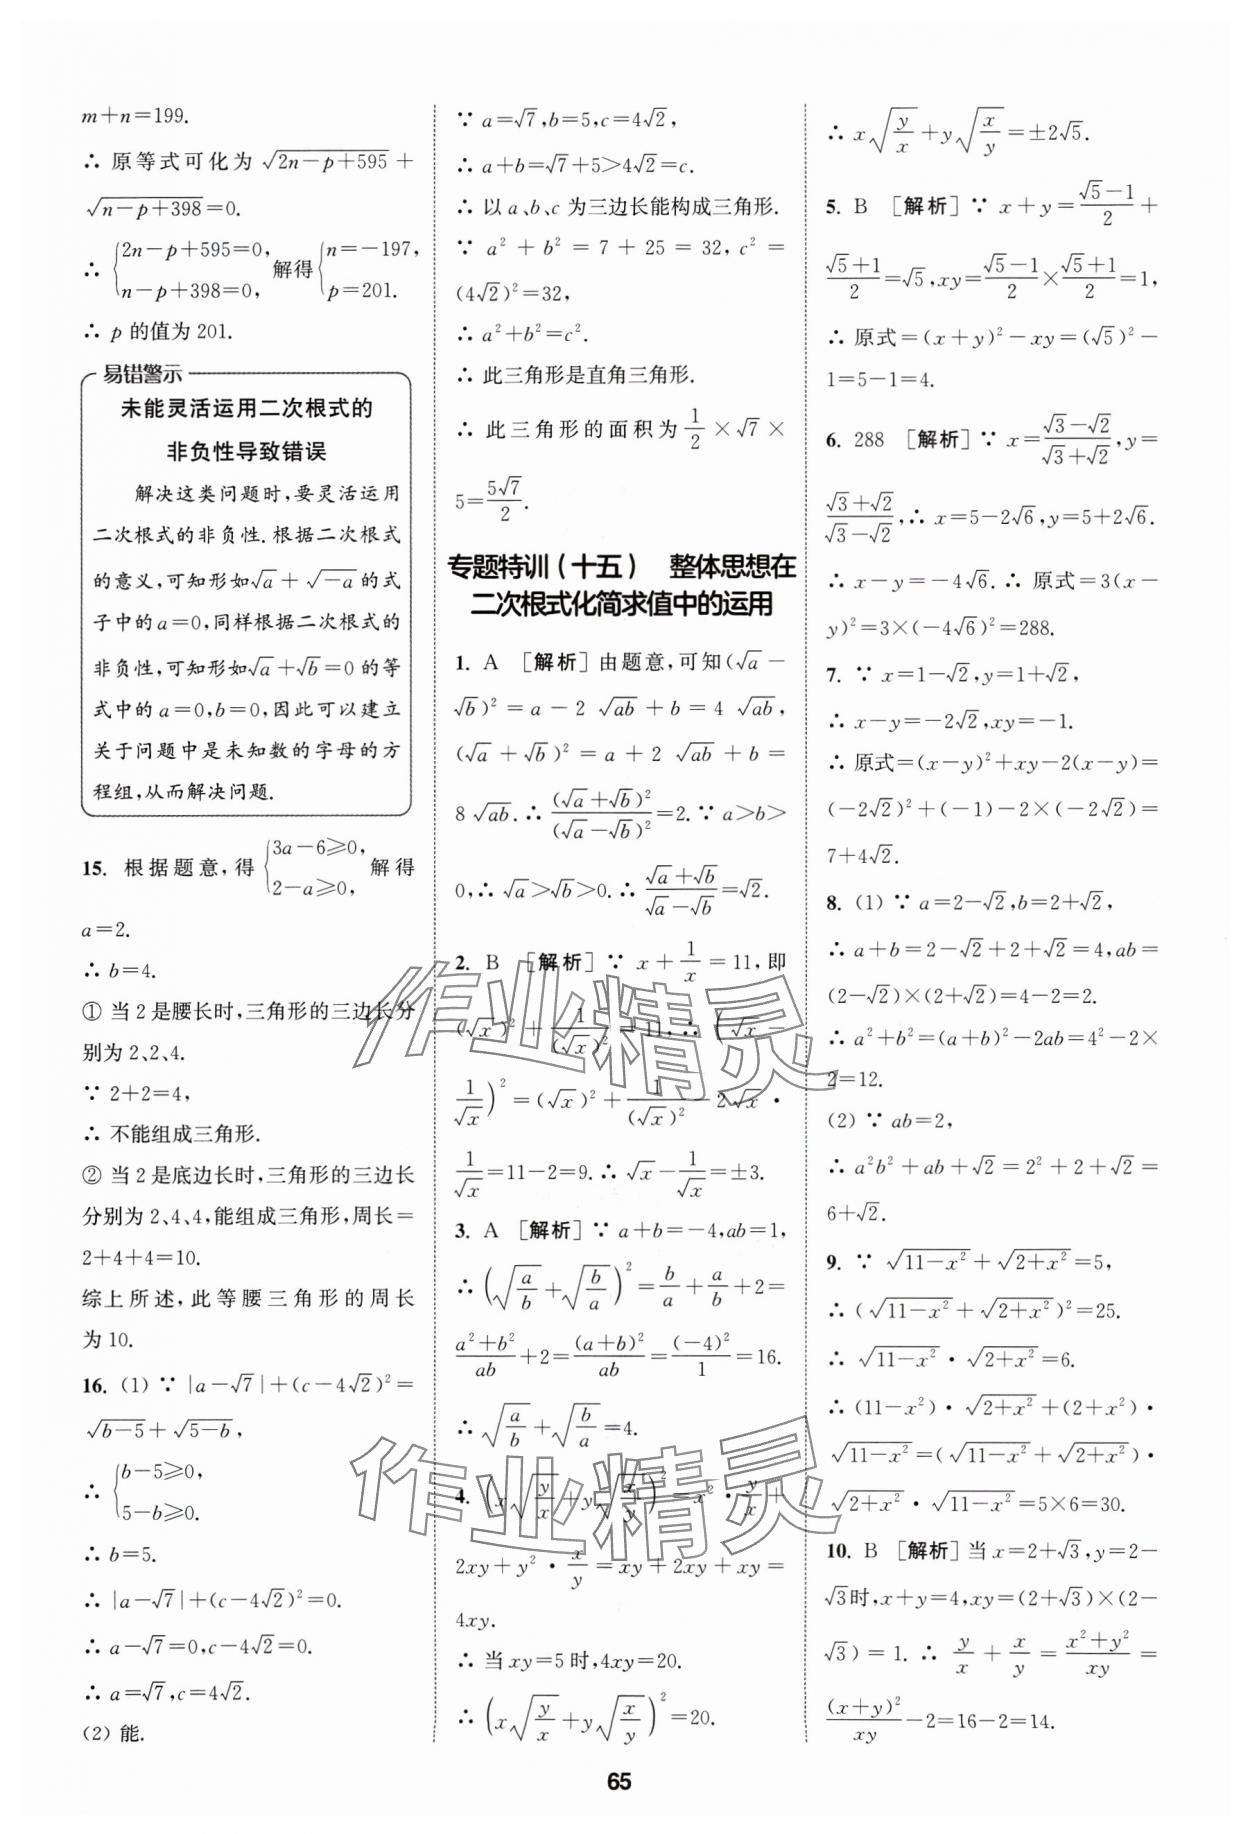 m+n=199.
∴ 原等式可化为 √(2n-p+595) +
√(n-p+398)=0.
∴ {2n-p+595=0, n-p+398=0, 解得 {n=-197, p=201.
∴ p 的值为 201.
易错警示
未能灵活运用二次根式的
非负性导致错误
解决这类问题时,要灵活运用
二次根式的非负性. 根据二次根式
的意义,可知形如√a + √(-a) 的式
子中的 a=0,同样根据二次根式的
非负性,可知形如√a+√b=0 的等
式中的 a=0,b=0,因此可以建立
关于问题中是未知数的字母的方
程组,从而解决问题.
15. 根据题意,得 {3a-6≥0, 2-a≥0, 解得
a=2.
∴ b=4.
① 当 2 是腰长时,三角形的三边长分
别为 2、2、4.
∵ 2+2=4,
∴ 不能组成三角形.
② 当 2 是底边长时,三角形的三边长
分别为 2、4、4,能组成三角形,周长=
2+4+4=10.
综上所述,此等腰三角形的周长
为 10.
16. (1) ∵ |a-√7|+(c-4√2)²=
√(b-5)+√(5-b),
∴ {b-5≥0, 5-b≥0.
∴ b=5.
∴ |a-√7|+(c-4√2)²=0.
∴ a-√7=0,c-4√2=0.
∴ a=√7,c=4√2.
(2) 能.
∵ a=√7,b=5,c=4√2,
∴ a+b=√7+5>4√2=c.
∴ 以 a、b、c 为三边长能构成三角形.
∵ a²+b²=7+25=32,c²=
(4√2)²=32,
∴ a²+b²=c².
∴ 此三角形是直角三角形.
∴ 此三角形的面积为 1/2 × √7 ×
5=5√7/2.
专题特训(十五) 整体思想在
二次根式化简求值中的运用
1. A [解析] 由题意,可知(√a-
√b)²=a-2√ab+b=4√ab,
(√a+√b)²=a+2√ab+b=
8√ab. ∴ (√a+√b)²/(√a-√b)²=2. ∵ a>b>
0,∴ √a>√b>0. ∴ (√a+√b)/(√a-√b)=√2.
2. B [解析] ∵ x+1/x=11,即
(√x)²+1/(√x)²=11,∴ (√x-
1/√x)²=(√x)²+1/(√x)²-2√x·
1/√x=11-2=9. ∴ √x-1/√x=±3.
3. A [解析] ∵ a+b=-4,ab=1,
∴ (√(a/b)+√(b/a))²=b/a+a/b+2=
(a²+b²)/ab+2=(a+b)²/ab=(-4)²/1=16.
∴ √(a/b)+√(b/a)=4.
4. (x√(y/x)+y√(x/y))²=x²·y/x+
2xy+y²·x/y=xy+2xy+xy=
4xy.
∴ 当 xy=5 时,4xy=20.
∴ (x√(y/x)+y√(x/y))²=20.
∴ x√(y/x)+y√(x/y)=±2√5.
5. B [解析] ∵ x+y=(√5-1)/2+
(√5+1)/2=√5,xy=(√5-1)/2×(√5+1)/2=1,
∴ 原式=(x+y)²-xy=(√5)²-
1=5-1=4.
6. 288 [解析] ∵ x=(√3-√2)/(√3+√2),y=
(√3+√2)/(√3-√2),∴ x=5-2√6,y=5+2√6.
∴ x-y=-4√6. ∴ 原式=3(x-
y)²=3×(-4√6)²=288.
7. ∵ x=1-√2,y=1+√2,
∴ x-y=-2√2,xy=-1.
∴ 原式=(x-y)²+xy-2(x-y)=
(-2√2)²+(-1)-2×(-2√2)=
7+4√2.
8. (1) ∵ a=2-√2,b=2+√2,
∴ a+b=2-√2+2+√2=4,ab=
(2-√2)×(2+√2)=4-2=2.
∴ a²+b²=(a+b)²-2ab=4²-2×
2=12.
(2) ∵ ab=2,
∴ a²b²+ab+√2=2²+2+√2=
6+√2.
9. ∵ √(11-x²)+√(2+x²)=5,
∴ (√(11-x²)+√(2+x²))²=25.
∴ √(11-x²)·√(2+x²)=6.
∴ (11-x²)·√(2+x²)+(2+x²)·
√(11-x²)=(√(11-x²)+√(2+x²))·
√(2+x²)·√(11-x²)=5×6=30.
10. B [解析] 当 x=2+√3,y=2-
√3时,x+y=4,xy=(2+√3)×(2-
√3)=1. ∴ y/x+x/y=(x²+y²)/xy=
(x+y)²/xy-2=16-2=14.
65
作业精灵
作业精灵